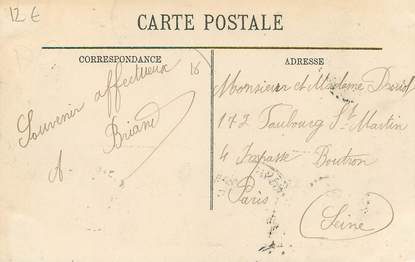 12 €
CARTE POSTALE
CORRESPONDANCE
ADRESSE
16
Souvenir affectueux
A. Briand
Monsieur et Madame
172 Faubourg St Martin
4 Impasse Boutron
Paris
Seine